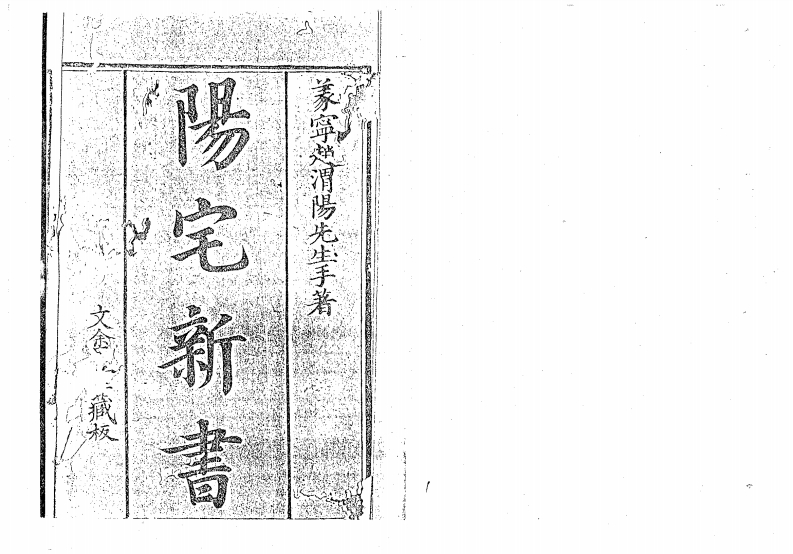 蒙寧趙渭陽先生手著
陽宅新書
文金
藏板